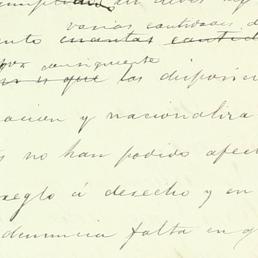 varias cantidades d
nto cuantas cantid
por consiguiente
es que las disposicio
acion y nacionaliza
no han podido afect
reglo á derecho y en
denuncia falta en